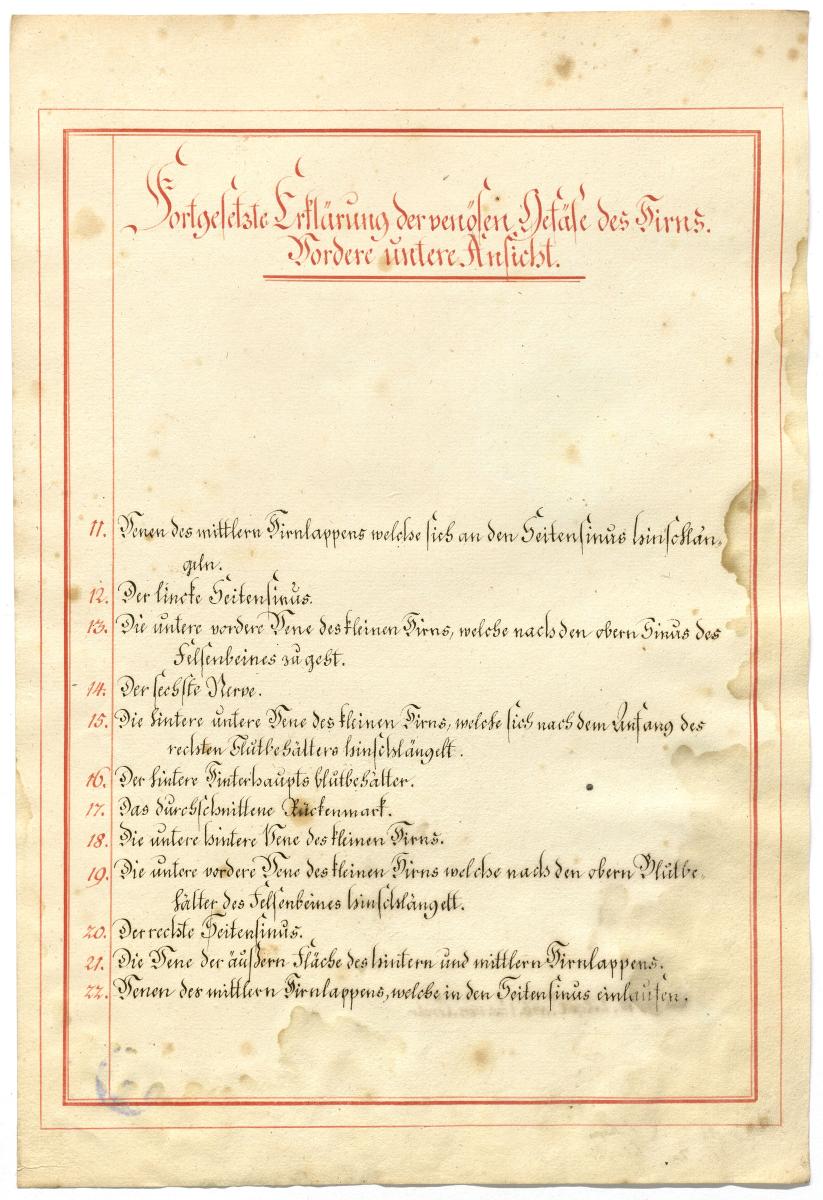 Fortgesetzte Erklärung der venösen Gefäse des Hirns.
Vordere untere Ansicht.
11. Venen des mittlern Hirnlappens welche sich an den Seitensinus hinschlän-
geln.
12. Der lincke Seitensinus.
13. Die untere vordere Vene des kleinen Hirns, welche nach den obern Sinus des
Felsenbeines zu geht.
14. Der sechste Nerve.
15. Die hintere untere Vene des kleinen Hirns, welche sich nach dem Anfang des
rechten Blutbehälters hinschlängelt.
16. Der hintere Hinterhaupts blutbehälter.
17. Das durchschnittene Rückenmark.
18. Die untere hintere Vene des kleinen Hirns.
19. Die untere vordere Vene des kleinen Hirns welche nach den obern Blutbe-
hälter des Felsenbeines hinschlängelt.
20. Der rechte Seitensinus.
21. Die Vene der äußern Fläche des hintern und mittlern Hirnlappens.
22. Venen des mittlern Hirnlappens, welche in den Seitensinus einlaufen.